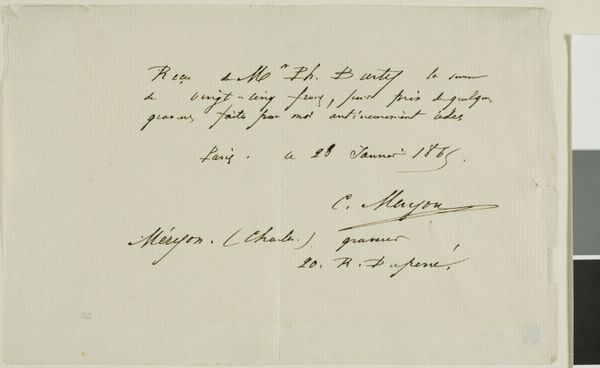 Reçu de Mr Ph. Burty la somme
de vingt-cinq francs, pour prix de quelques
gravures faites par moi antérieurement
Paris. Le 28 Janvier 1865.
C. Meryon
Méryon. (Charles.) graveur
20. R. Duperré.